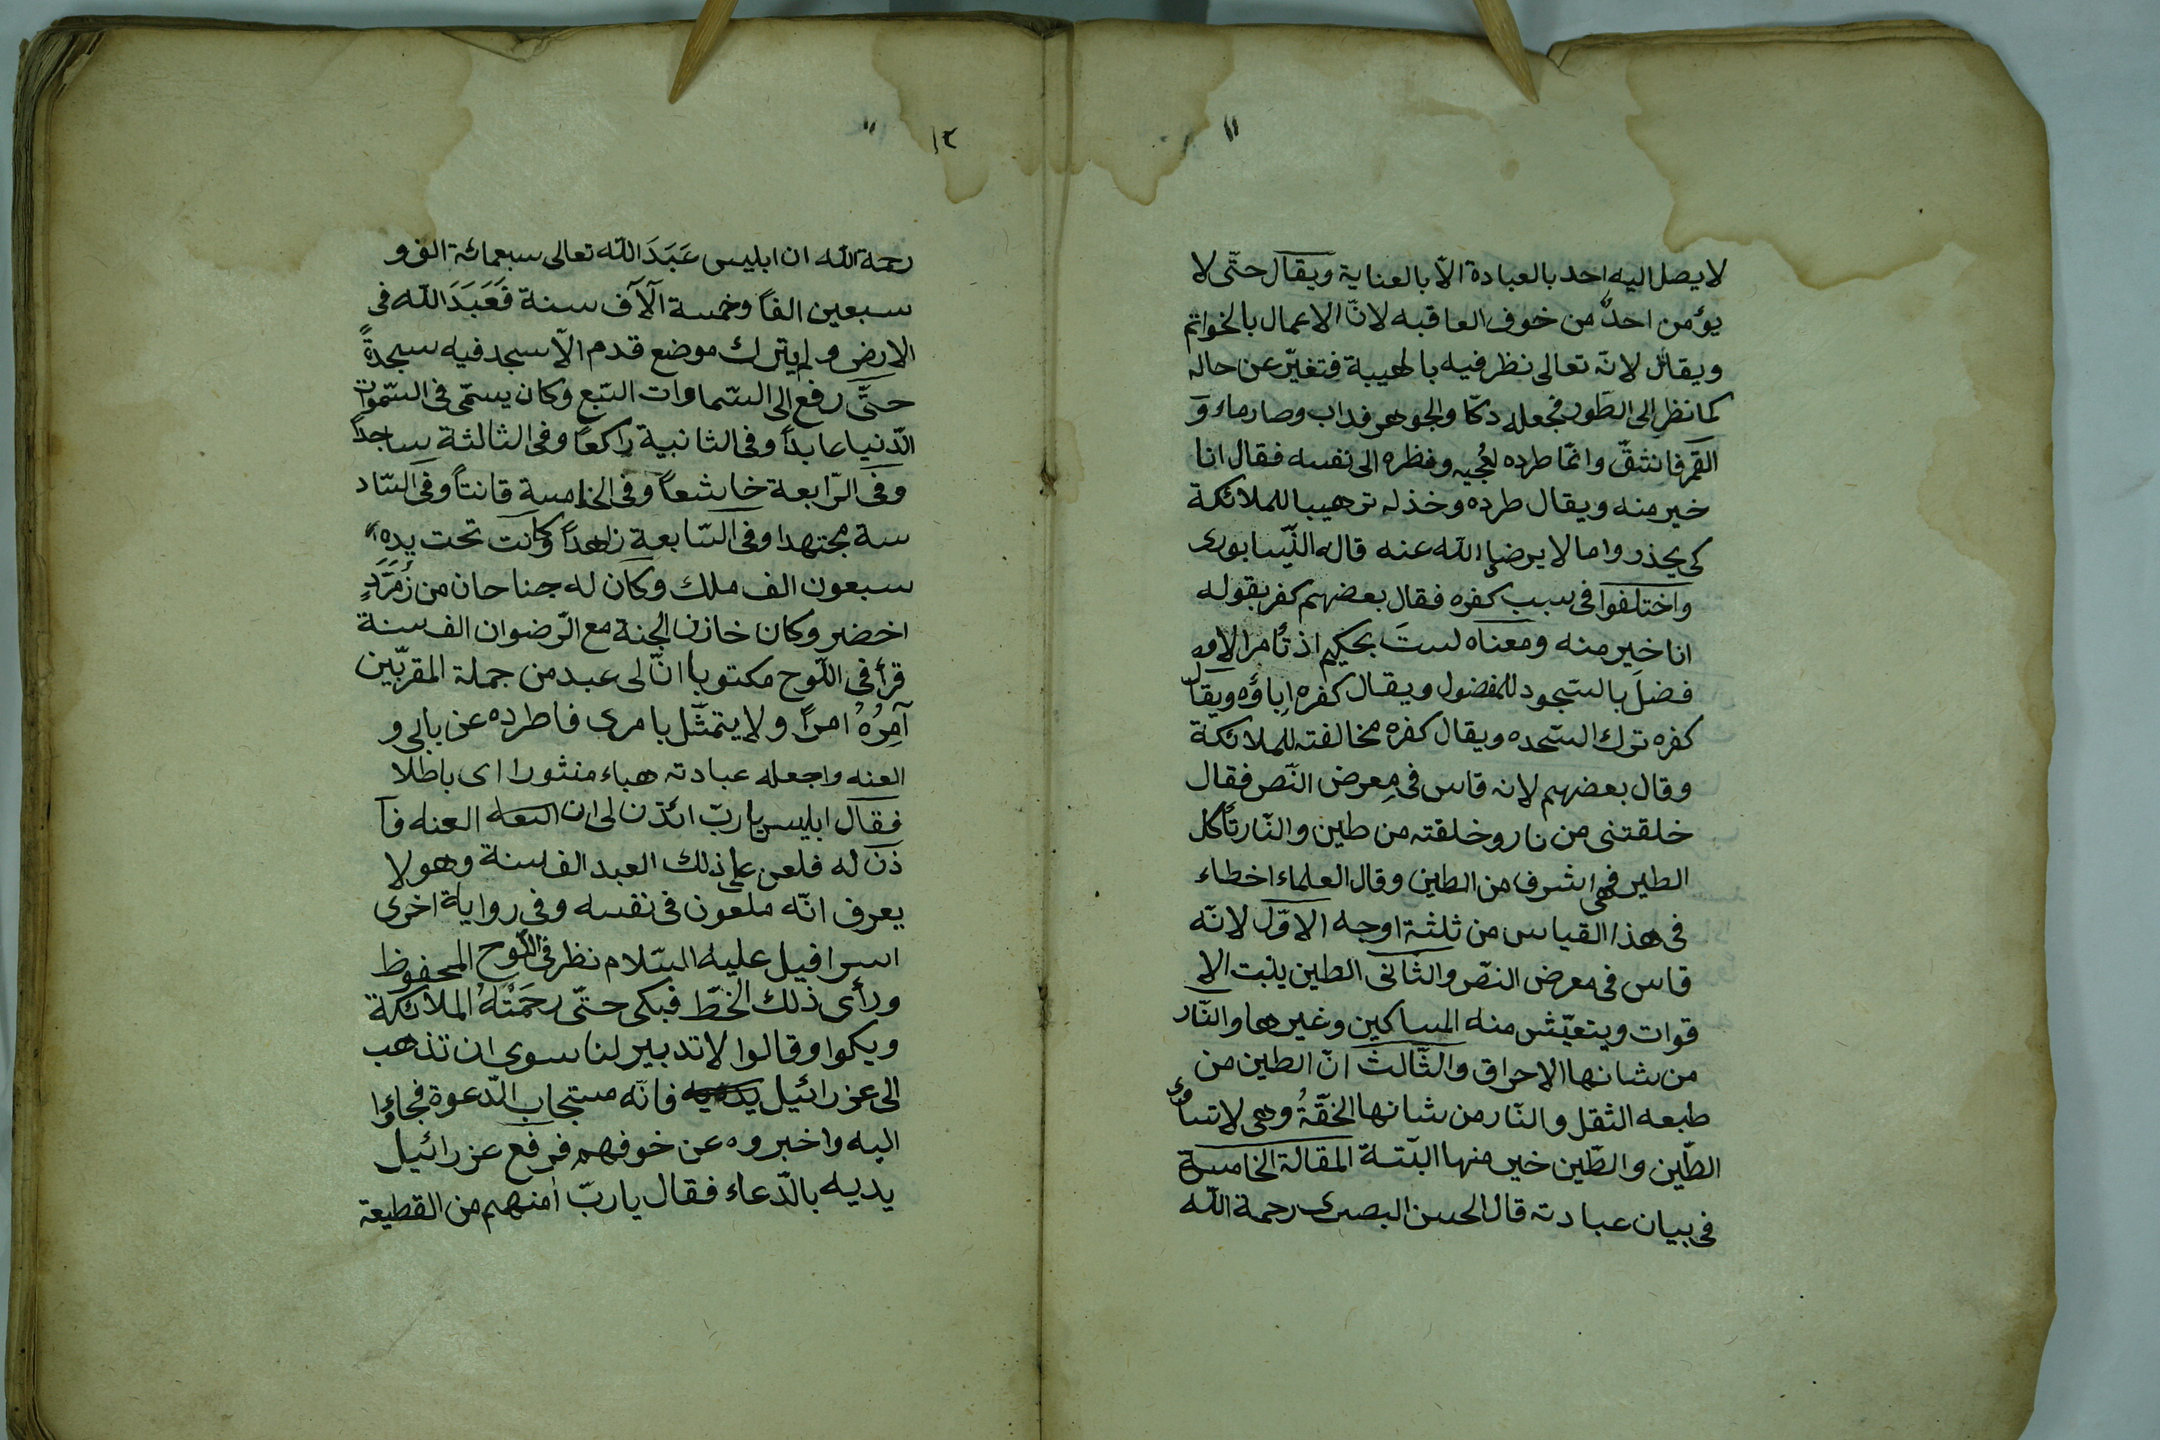 ١١
لا يصل اليه احد بالعبادة الّا بالعناية ويقال حتّى لا
يؤمن احدٌ من خوف العاقبه لانّ الاعمال بالخواتم
ويقال لانّه تعالى نظر فيه بالهيبة فتغيّر عن حاله
كما نظر الى الطّور فجعله دكّا والجوهر فداب وصار ماء و
القمر فانشقّ وانّما طرده لعُجبه ونظره الى نفسه فقال انا
خير منه ويقال طرده وخذله ترهيبا للملائكة
كى يحذروا ما لا يرضى الله عنه قاله النّيسابورى
واختلفوا فى سبب كفره فقال بعضهم كفر بقوله
انا خير منه ومعناه لستَ بحكيم اذ تأمر الا
فضلَ بالسّجود للمفضول ويقال كفره اِباؤه ويقال
كفره ترك السّجده ويقال كفره مخالفته للملائكة
وقال بعضهم لانه قاس فى مِعرض النّص فقال
خلقتنى من نار وخلقته من طين والنّار تأكل
الطين فهى اشرف من الطين وقال العلماء اخطاء
فى هذا القياس من ثلثة اوجه الاوّل لانّه
قاس فى معرض النصّ والثّانى الطين ينبت الا
قوات ويتعيّش منه المساكين وغيرها والنّار
من شانها الاحراق والثّالث انّ الطين من
طبعه الثقل والنّار من شانها الخفّةُ وهى لا تساوى
الطّين والطّين خير منها البتّة المقالة الخامسة
فى بيان عبادته قال الحسن البصرى رحمة الله
١٢
رحمة الله ان ابليس عَبَدَ الله تعالى سبعمائة الف و
سبعين الفاً وخمسة آلآف سنة فَعَبَدَ الله فى
الارض ولم يترك موضع قدم الّا سجد فيه سجدةً
حتّى رفع الى السّماوات السّبع وكان يسمّى فى السّموات
الدّنيا عابداً وفى الثانية راكعاً وفى الثالثة ساجداً
وفى الرّابعة خاشعاً وفى الخامسة قانتاً وفى السّاد
سة مجتهدا وفى السّابعة زاهداً وكانت تحت يده
سبعون الف ملك وكان له جناحان من زُمَرَّدٍ
اخضر وكان خازن الجنة مع الرّضوان الف سنة
قرأ فى اللّوح مكتوبا انّ لى عبد من جملة المقربّين
آمِرُهُ امراً ولا يتمثّل بامرى فاطرده عن بابى و
العنه واجعله عبادته هباء منثورا اى باطلا
فقال ابليس يا ربّ ائذن لى ان العنه فآ
ذن له فلعن على ذلك العبد الف سنة وهو لا
يعرف انّه ملعون فى نفسه وفى رواية اخرى
اسرافيل عليه السّلام نظر فى اللّوح المحفوظ
ورأى ذلك الخطّ فبكى حتّى رحمَتْهُ الملائكة
وبكوا وقالوا لا تدبير لنا سوى ان تذهب
الى عزرائيل فانّه مستجاب الدّعوة فجاؤا
اليه واخبروه عن خوفهم فرفع عزرائيل
يديه بالدّعاء فقال يا ربّ امنهم من القطيعة